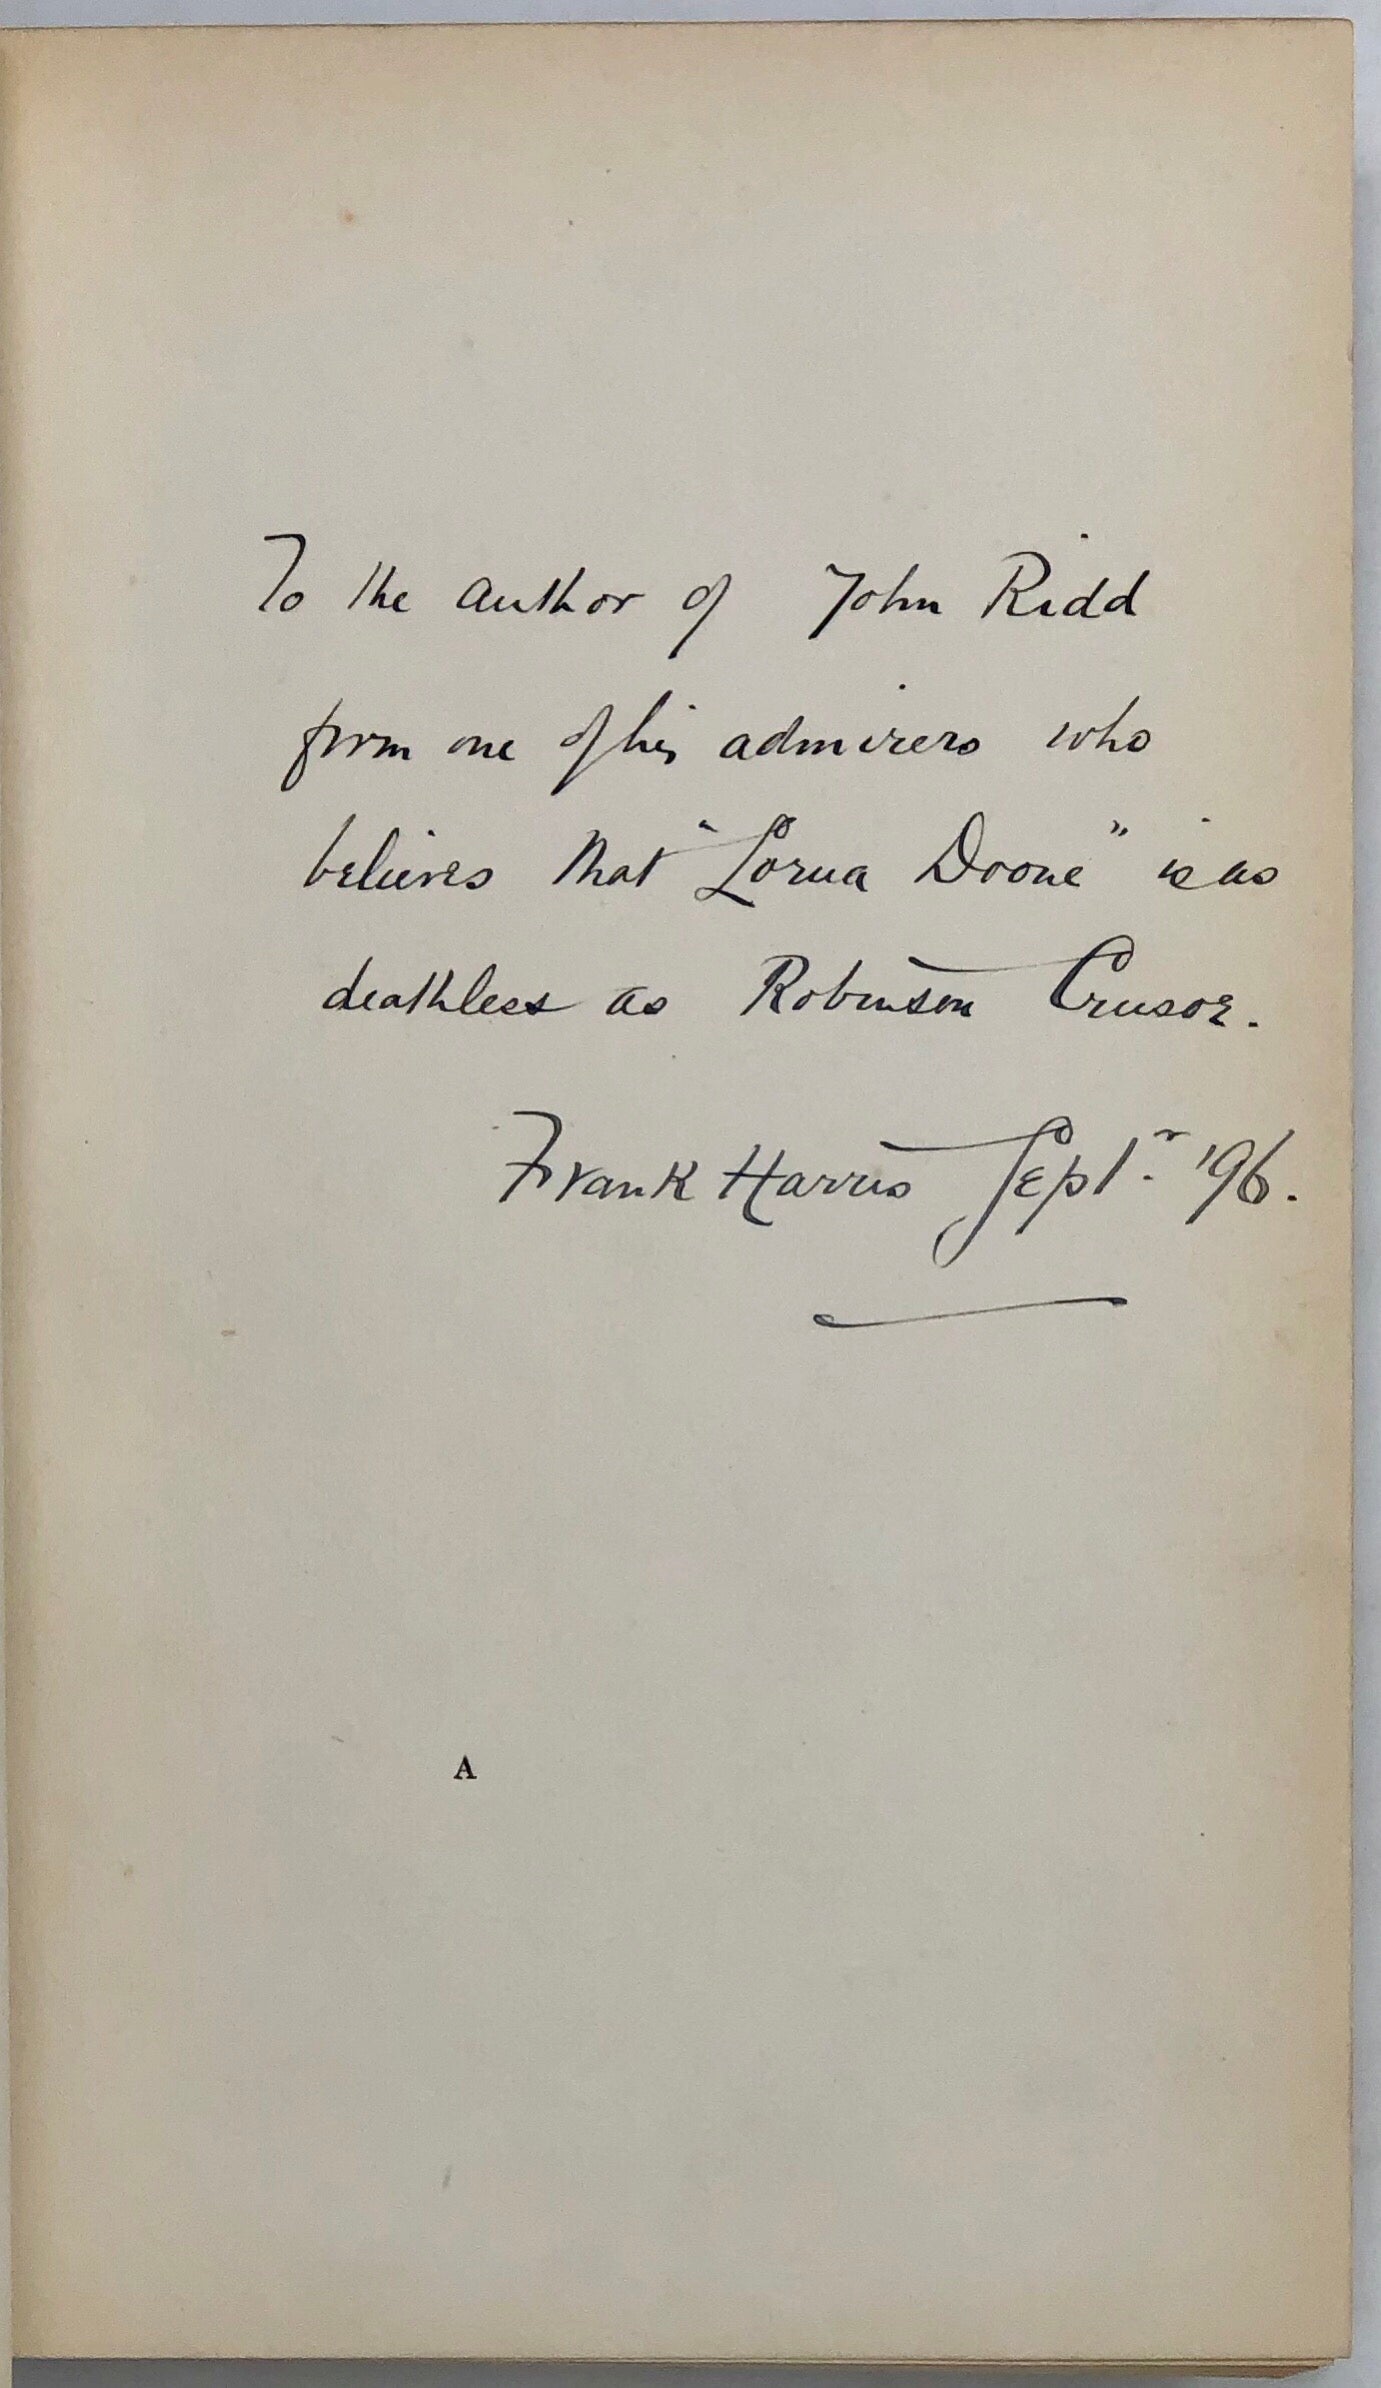 To the author of John Ridd
from one of his admirers who
believes that "Lorna Doone" is as
deathless as Robinson Crusoe.
Frank Harris Septr. '96.
A